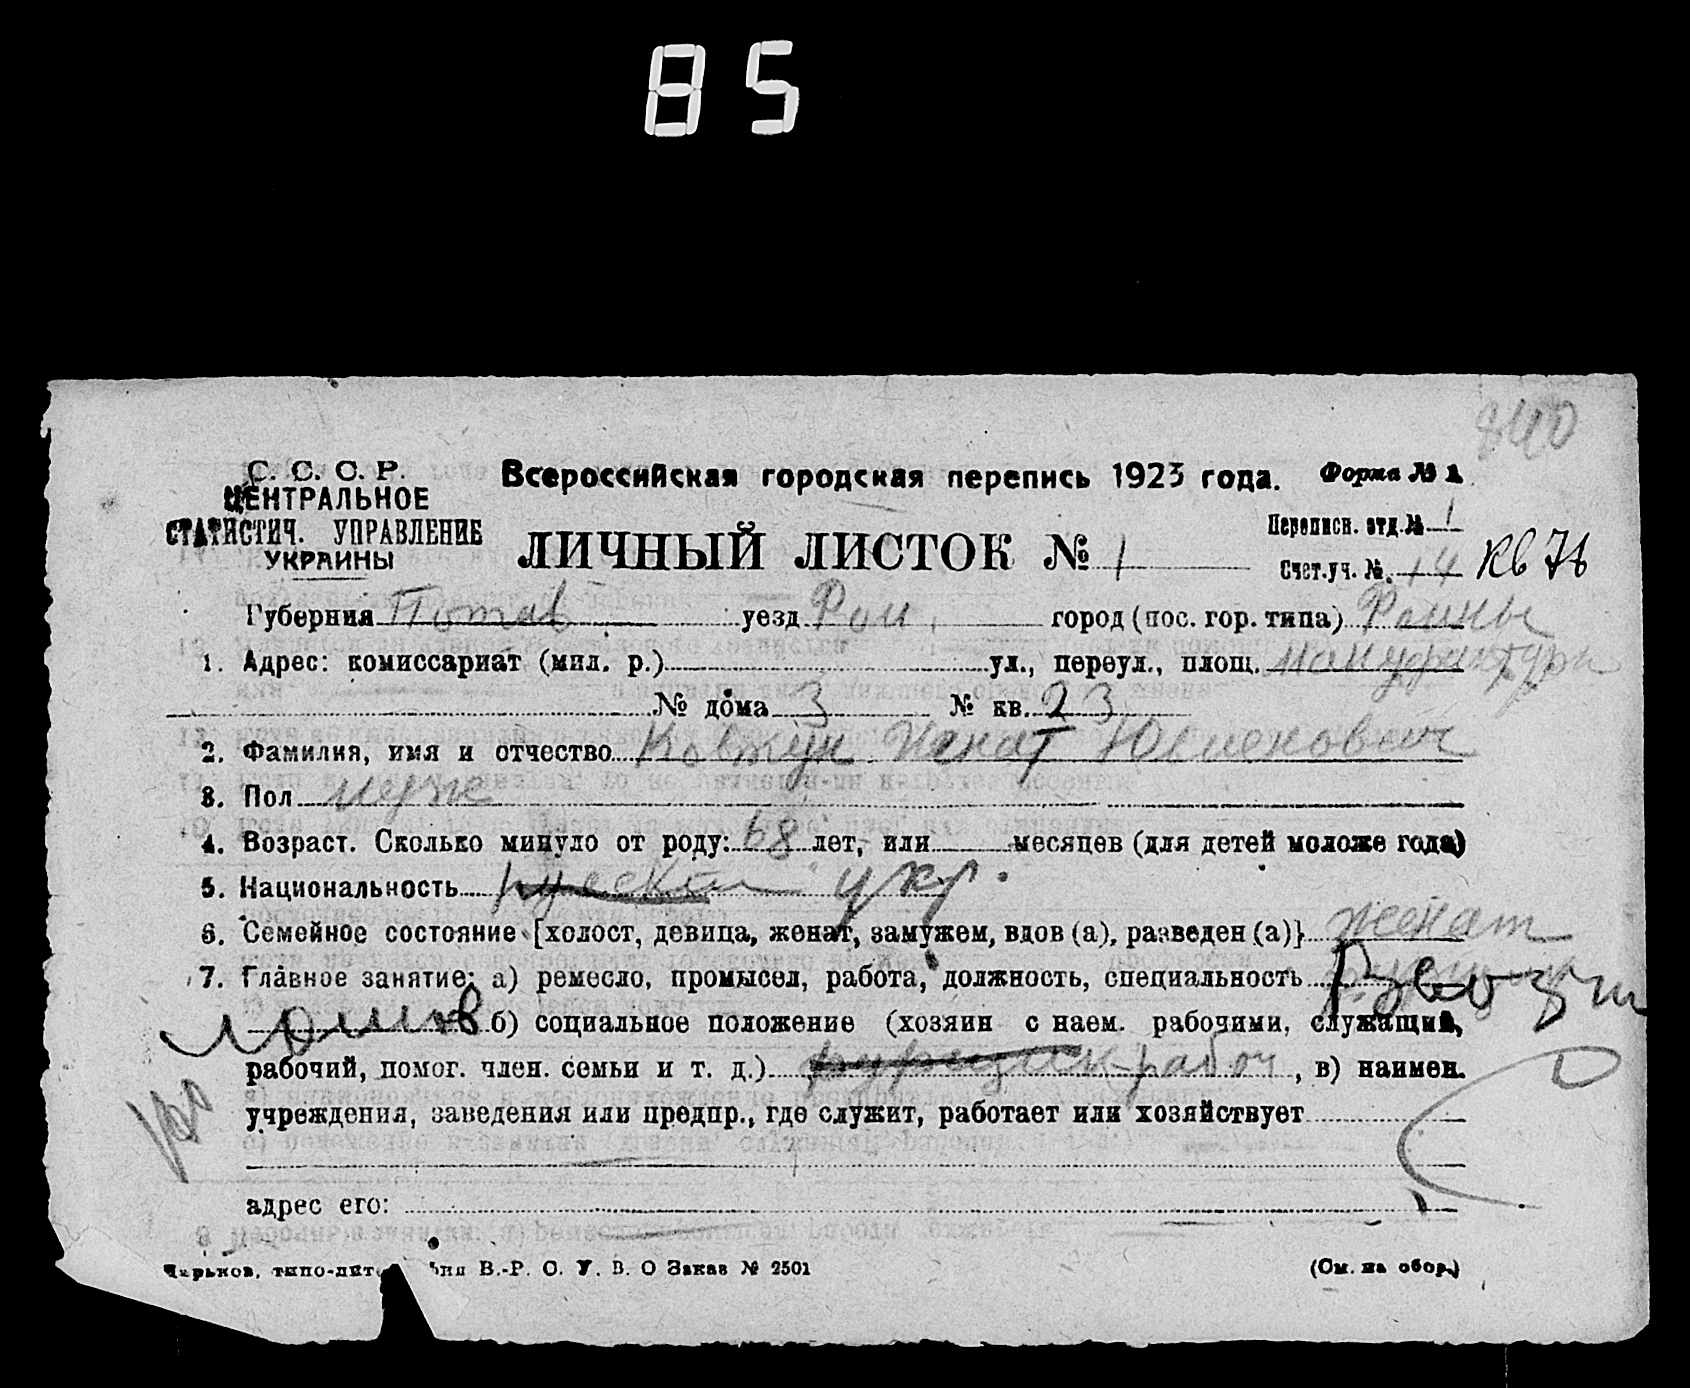 85
840
С. С. С. Р.
ЦЕНТРАЛЬНОЕ
СТАТИСТИЧ. УПРАВЛЕНИЕ
УКРАИНЫ
Всероссийская городская перепись 1923 года. Форма № 1
ЛИЧНЫЙ ЛИСТОК № 1
Переписн. отд. № 1
Счет. уч. № 14
Губерния Потав уезд Ром город (пос. гор. типа) Ромны
1. Адрес: комиссариат (мил. р.) ул., переул., площ.
№ дома 3 № кв. 23
2. Фамилия, имя и отчество Ковжун Игнат
3. Пол муж
4. Возраст. Сколько минуло от роду: 68 лет, или месяцев (для детей моложе года)
5. Национальность русской укр.
6. Семейное состояние [холост, девица, женат, замужем, вдов (а), разведен (а)} женат
7. Главное занятие: а) ремесло, промысел, работа, должность, специальность
б) социальное положение (хозяин с наем. рабочими, служащий,
рабочий, помог. член. семьи и т. д.) рабоч, в) наимен.
учреждения, заведения или предпр., где служит, работает или хозяйствует
адрес его:
Харьков, типо-лит В.-Р. О. У. В. О Заказ № 2501 (См. на обор.)